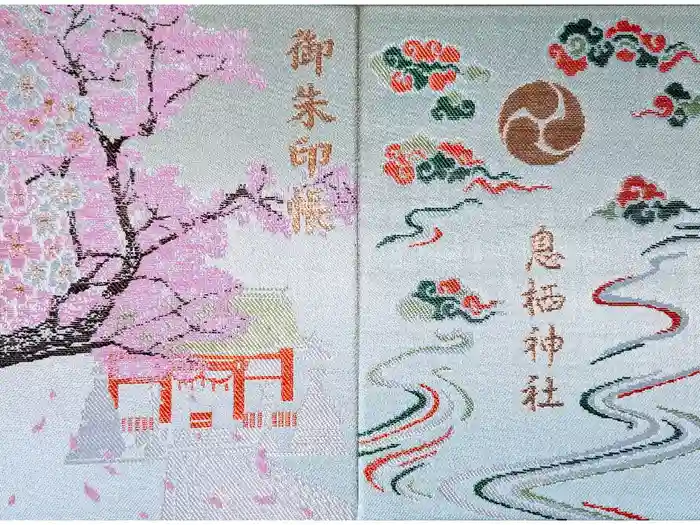 御朱印帳
息栖神社